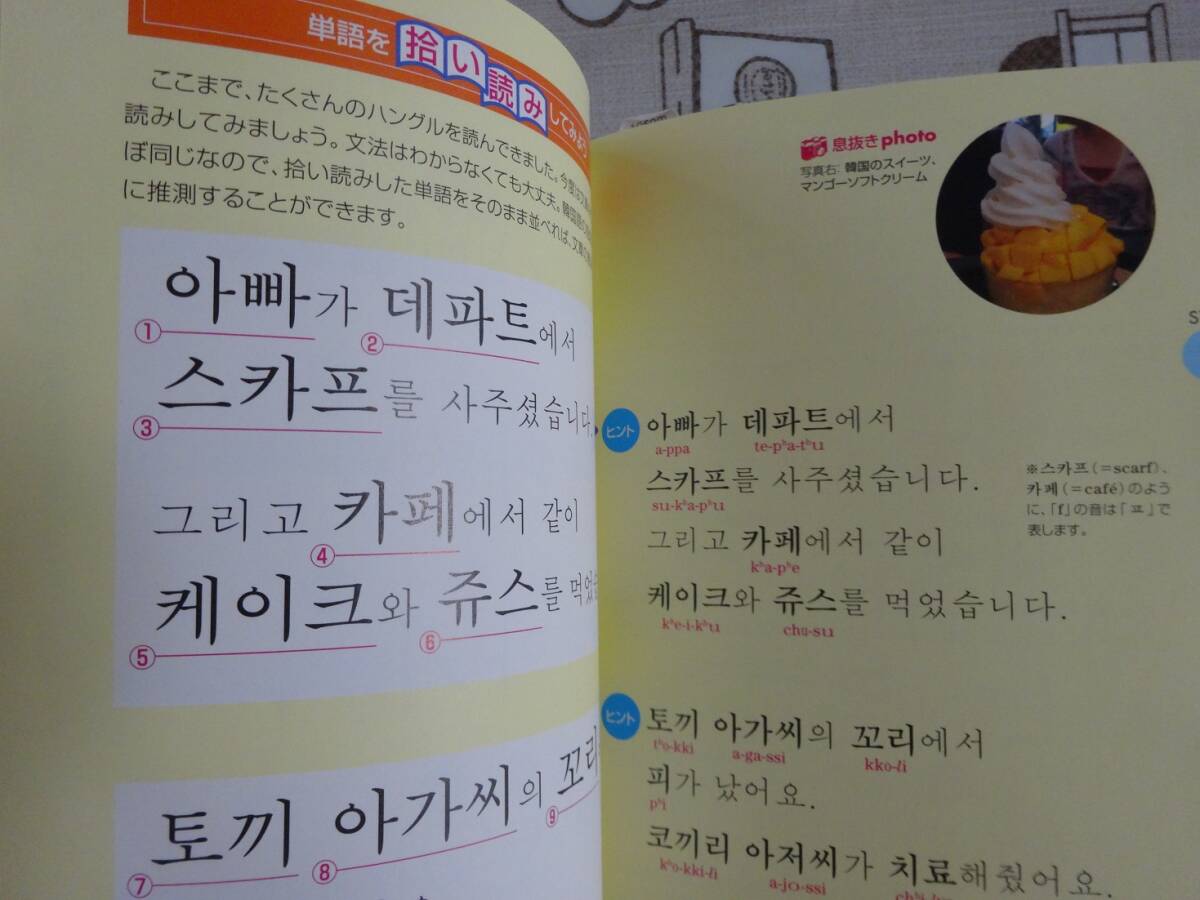 単語を拾い読みしてみよう
ここまで、たくさんのハングルを読んできました。今度は文章
読みしてみましょう。文法はわからなくても大丈夫。韓国語の
ぼ同じなので、拾い読みした単語をそのまま並べれば、文章の
に推測することができます。
아빠가 데파트에서
① ②
스카프를 사주셨습니다.
③
그리고 카페에서 같이
④
케이크와 쥬스를 먹었
⑤ ⑥
토끼 아가씨의 꼬리
⑦ ⑧ ⑨
息抜きphoto
写真右: 韓国のスイーツ、
マンゴーソフトクリーム
ヒント
아빠가 데파트에서
a-ppa te-pʰa-tʰɯ
스카프를 사주셨습니다.
sɯ-kʰa-pʰɯ
그리고 카페에서 같이
kʰa-pʰe
케이크와 쥬스를 먹었습니다.
kʰe-i-kʰɯ chu-sɯ
※스카프(=scarf)、
카페(=café)のよう
に、「f」の音は「ㅍ」で
表します。
ヒント
토끼 아가씨의 꼬리에서
tʰo-kki a-ga-ssi kko-li
피가 났어요.
pʰi
코끼리 아저씨가 치료해줬어요.
kʰo-kki-li a-jɔ-ssi